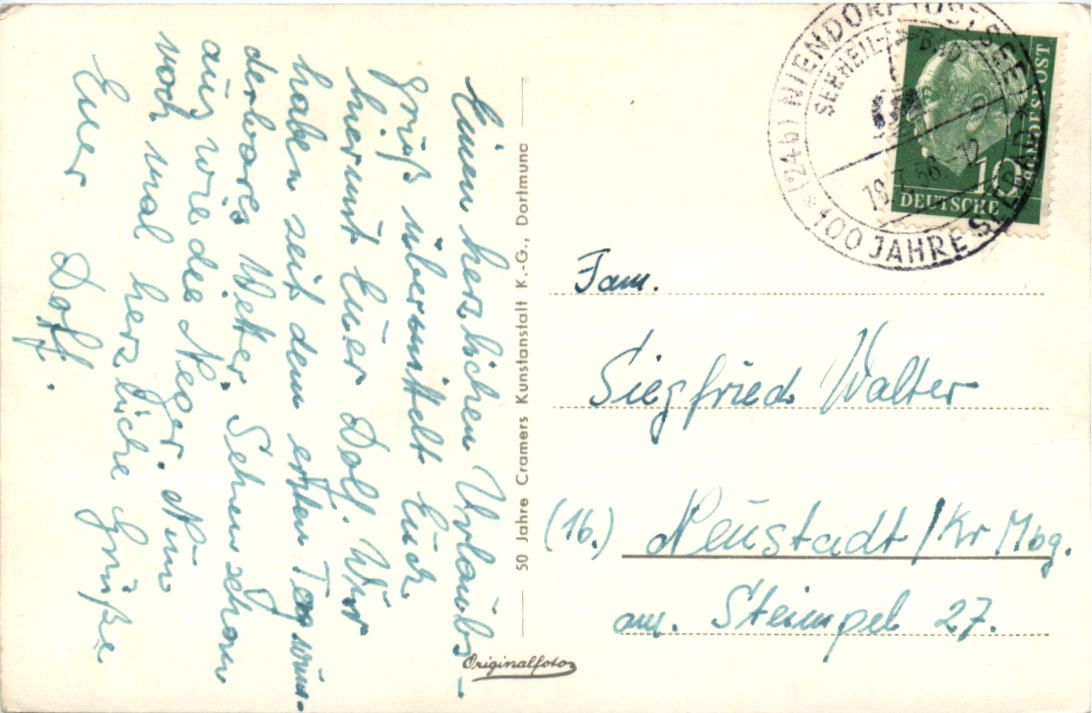 Einen herzlichen Urlaubs-
gruß übermittelt Euch
hiermit Euer Dolf. Wir
haben seit dem ersten Tag wun-
derbares Wetter. Sehen schon
aus wie die Neger. Nun
noch mal herzliche Grüße
Euer Dolf.
50 Jahre Cramers Kunstanstalt K.-G., Dortmund
Originalfoto
(24b) NIENDORF (OSTSEE)
SEEHEIL-BAD
* 100 JAHRE SEEBAD
DEUTSCHE
BUNDESPOST
10
Fam.
Siegfried Walter
(16.) Neustadt/Kr Mbg.
am. Steimpel 27.